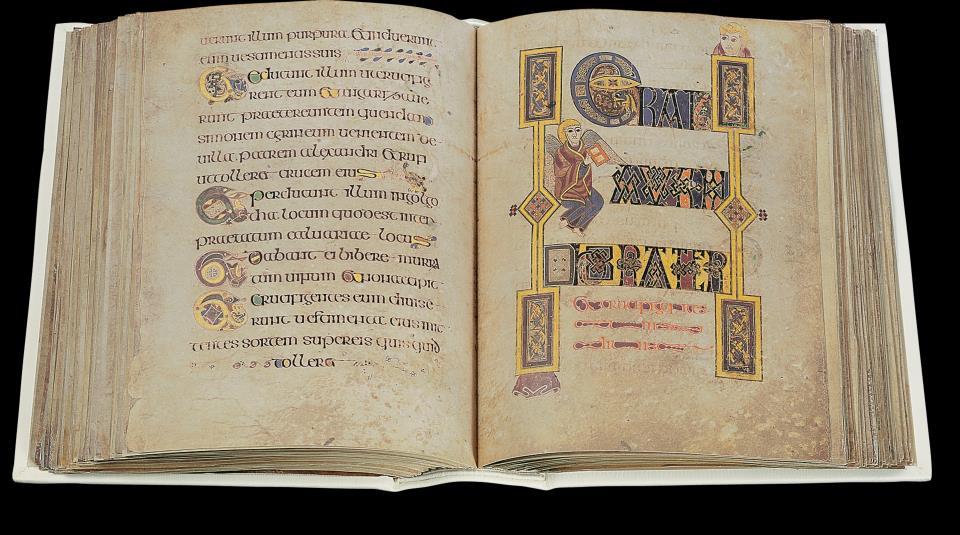 uerunt illum purpura & induerunt
eum uestimentis suis
Educunt illum ut crucifige
rent eum & angarizaue
runt praetereuntem quendam
simonem cyrineum uenientem de
uilla patrem alexandri & rufi
ut tollere crucem eius
& perducunt illum in golgo
tha locum quod est inter
praetatum caluariae locus
& dabant ei bibere murra
tum uinum & non accipit
& crucifigentes eum diuise
runt uestimenta eius mit
tentes sortem super eis quis quid
tolleret
ERAT
AUTEM